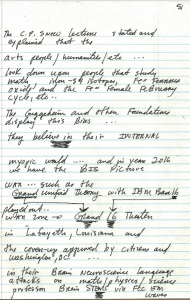 The C.P. Snow lecture stated and
explained that the
arts people / humanities / etc ...
look down upon people that study
math, iron-54 isotopes, Fe= Ferrous
oxide and the Fe= Female February
cycle, etc..
The Guggenheim and other Foundations
display this Bias ...
they believe in their INTERNAL
myopic world .... and in year 2016
we have the BIG Picture
war ... such as the
Grand unified Theory with IBM Bank 16
played out..
war zone → Grand 16 Theater
in Lafayette, Louisiana and
the cover-up approved by citizens and
Washington, DC ...
in their Brain Neuroscience language
attacks on math / physics / science
professor Brain STEM via FCC EM
waves